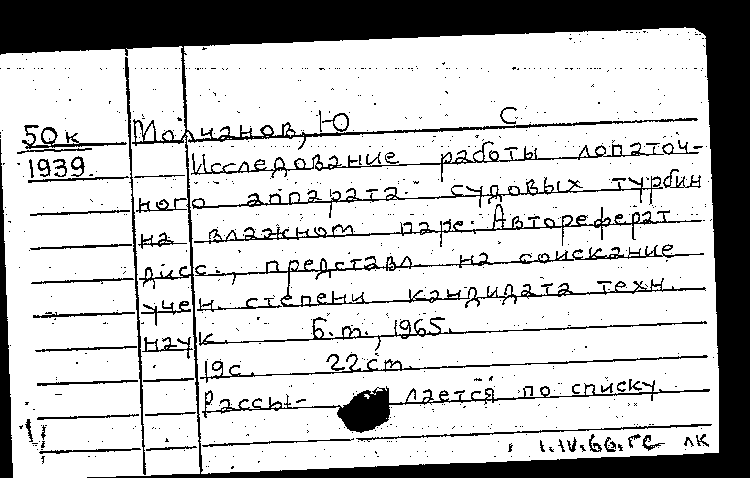 50к Молчанов, Ю С
1939. Исследование работы лопаточ-
ного аппарата судовых турбин
на влажном паре: Автореферат
дисс., представл. на соискание
учен. степени кандидата техн.
наук. Б.m., 1965.
19с. 22cm.
Рассы- лается по списку.
1.IV.66.ГС лк